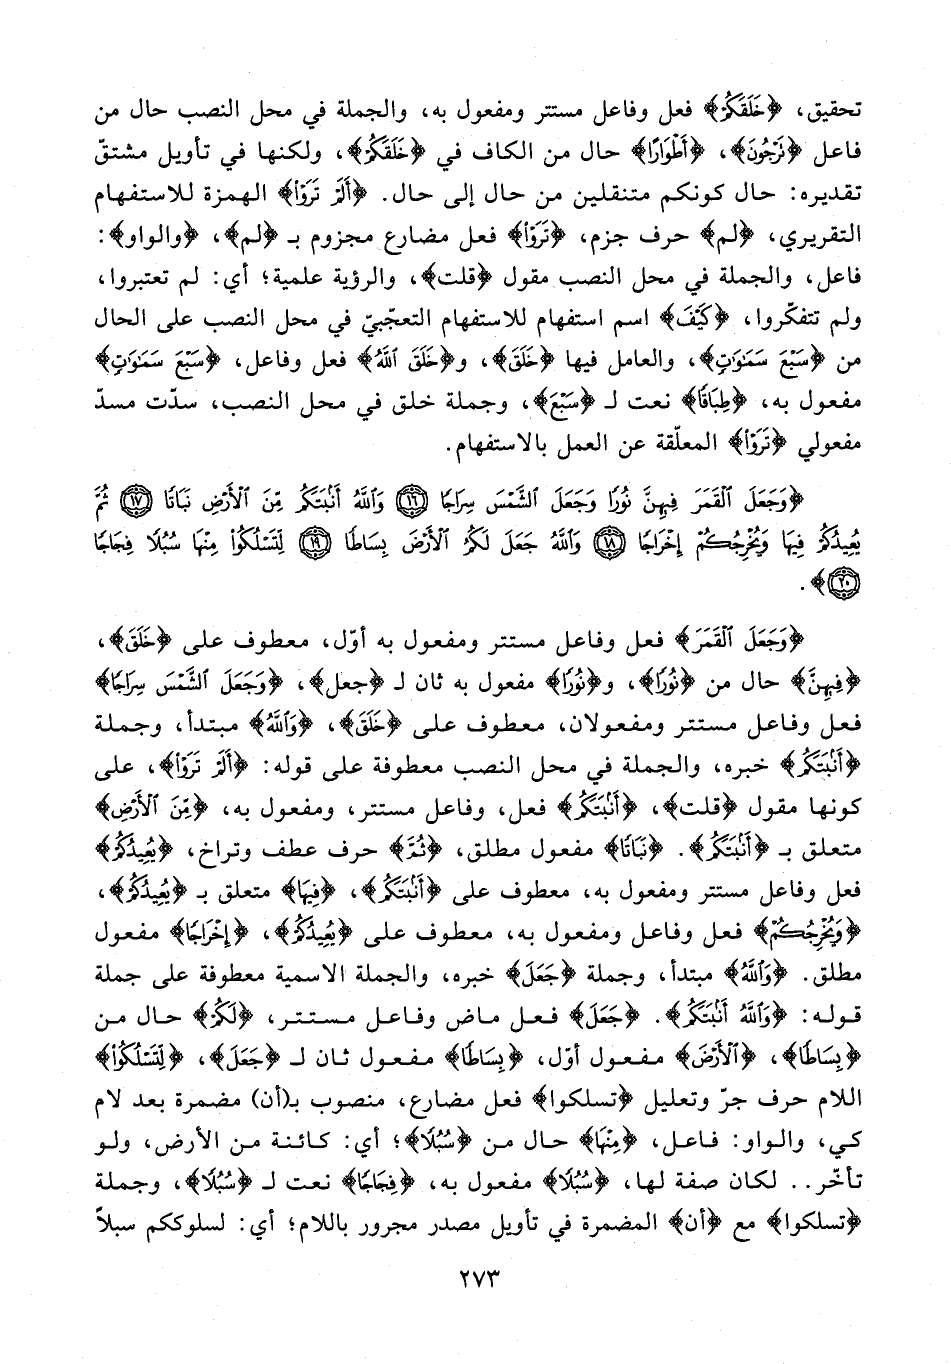 تحقيق، ﴿خَلَقَكُمْ﴾ فعل وفاعل مستتر ومفعول به، والجملة في محل النصب حال من
فاعل ﴿نَرْجُونَ﴾، ﴿أَطْوَارًا﴾ حال من الكاف في ﴿خَلَقَكُمْ﴾، ولكنها في تأويل مشتقّ
تقديره: حال كونكم متنقلين من حال إلى حال. ﴿أَلَمْ تَرَوْا﴾ الهمزة للاستفهام
التقريري، ﴿لم﴾ حرف جزم، ﴿تَرَوْا﴾ فعل مضارع مجزوم بـ ﴿لم﴾، ﴿والواو﴾:
فاعل، والجملة في محل النصب مقول ﴿قلت﴾، والرؤية علمية؛ أي: لم تعتبروا،
ولم تتفكّروا، ﴿كَيْفَ﴾ اسم استفهام للاستفهام التعجّبيّ في محل النصب على الحال
من ﴿سَبْعَ سَمَٰوَٰتٍ﴾، والعامل فيها ﴿خَلَقَ﴾، و﴿خَلَقَ ٱللَّهُ﴾ فعل وفاعل، ﴿سَبْعَ سَمَٰوَٰتٍ﴾
مفعول به، ﴿طِبَاقًا﴾ نعت لـ ﴿سَبْعَ﴾، وجملة خلق في محل النصب، سدّت مسدّ
مفعولي ﴿تَرَوْا﴾ المعلّقة عن العمل بالاستفهام.
﴿وَجَعَلَ ٱلْقَمَرَ فِيهِنَّ نُورًا وَجَعَلَ ٱلشَّمْسَ سِرَاجًا ١٦ وَٱللَّهُ أَنۢبَتَكُم مِّنَ ٱلْأَرْضِ نَبَاتًا ١٧ ثُمَّ
يُعِيدُكُمْ فِيهَا وَيُخْرِجُكُمْ إِخْرَاجًا ١٨ وَٱللَّهُ جَعَلَ لَكُمُ ٱلْأَرْضَ بِسَاطًا ١٩ لِّتَسْلُكُوا۟ مِنْهَا سُبُلًا فِجَاجًا
٢٠﴾.
﴿وَجَعَلَ ٱلْقَمَرَ﴾ فعل وفاعل مستتر ومفعول به أوّل، معطوف على ﴿خَلَقَ﴾،
﴿فِيهِنَّ﴾ حال من ﴿نُورًا﴾، و﴿نُورًا﴾ مفعول به ثان لـ ﴿جعل﴾، ﴿وَجَعَلَ ٱلشَّمْسَ سِرَاجًا﴾
فعل وفاعل مستتر ومفعولان، معطوف على ﴿خَلَقَ﴾، ﴿وَٱللَّهُ﴾ مبتدأ، وجملة
﴿أَنۢبَتَكُم﴾ خبره، والجملة في محل النصب معطوفة على قوله: ﴿أَلَمْ تَرَوْا﴾، على
كونها مقول ﴿قلت﴾، ﴿أَنۢبَتَكُم﴾ فعل، وفاعل مستتر، ومفعول به، ﴿مِّنَ ٱلْأَرْضِ﴾
متعلق بـ ﴿أَنۢبَتَكُم﴾. ﴿نَبَاتًا﴾ مفعول مطلق، ﴿ثُمَّ﴾ حرف عطف وتراخ، ﴿يُعِيدُكُمْ﴾
فعل وفاعل مستتر ومفعول به، معطوف على ﴿أَنۢبَتَكُم﴾، ﴿فِيهَا﴾ متعلق بـ ﴿يُعِيدُكُمْ﴾،
﴿وَيُخْرِجُكُمْ﴾ فعل وفاعل ومفعول به، معطوف على ﴿يُعِيدُكُمْ﴾، ﴿إِخْرَاجًا﴾ مفعول
مطلق. ﴿وَٱللَّهُ﴾ مبتدأ، وجملة ﴿جَعَلَ﴾ خبره، والجملة الاسمية معطوفة على جملة
قوله: ﴿وَٱللَّهُ أَنۢبَتَكُم﴾. ﴿جَعَلَ﴾ فعل ماض وفاعل مستتر، ﴿لَكُمُ﴾ حال من
﴿بِسَاطًا﴾، ﴿ٱلْأَرْضَ﴾ مفعول أوّل، ﴿بِسَاطًا﴾ مفعول ثان لـ ﴿جَعَلَ﴾، ﴿لِّتَسْلُكُوا۟﴾
اللام حرف جرّ وتعليل ﴿تسلكوا﴾ فعل مضارع، منصوب بـ(أن) مضمرة بعد لام
كي، والواو: فاعل، ﴿مِنْهَا﴾ حال من ﴿سُبُلًا﴾؛ أي: كائنة من الأرض، ولو
تأخّر.. لكان صفة لها، ﴿سُبُلًا﴾ مفعول به، ﴿فِجَاجًا﴾ نعت لـ ﴿سُبُلًا﴾، وجملة
﴿تسلكوا﴾ مع ﴿أن﴾ المضمرة في تأويل مصدر مجرور باللام؛ أي: لسلوككم سبلاً
٢٧٣